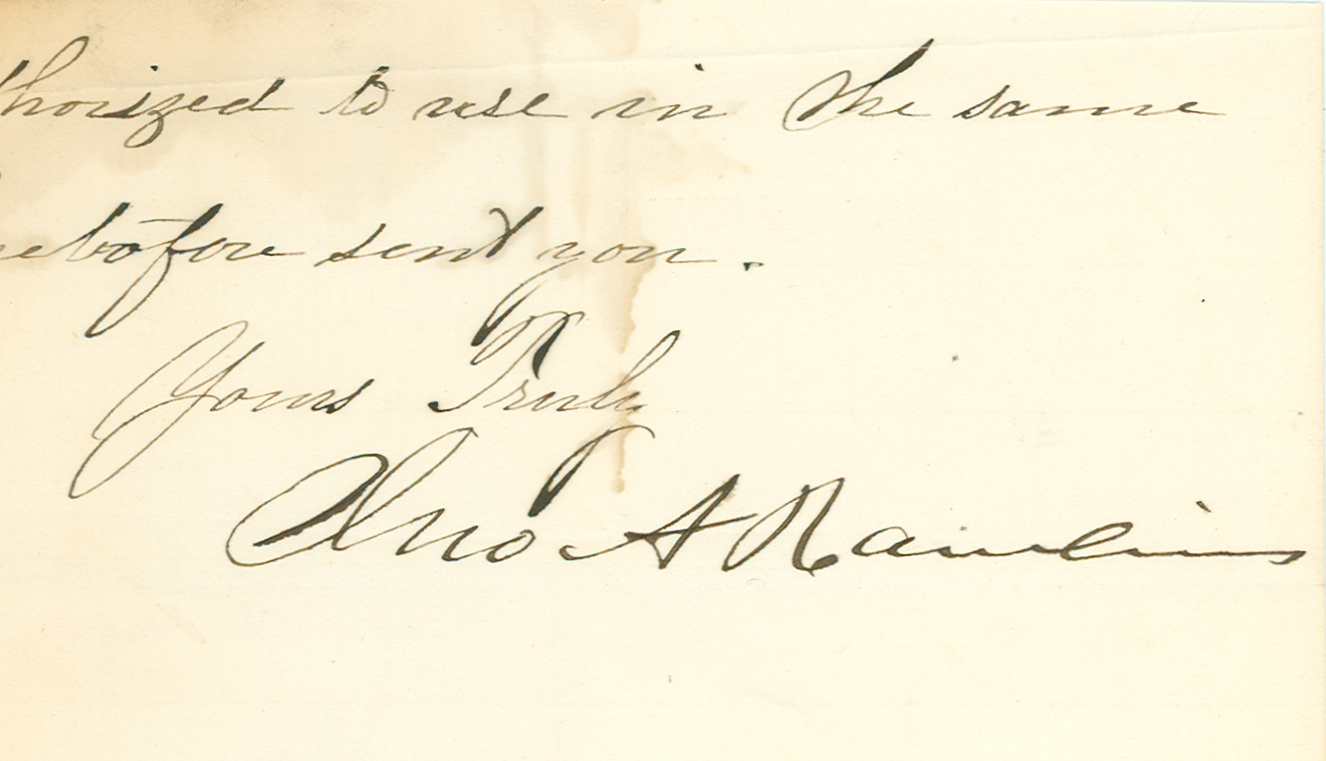 thorized to use in the same
ebefore sent you.
Yours Truly
Jno A Rawlins